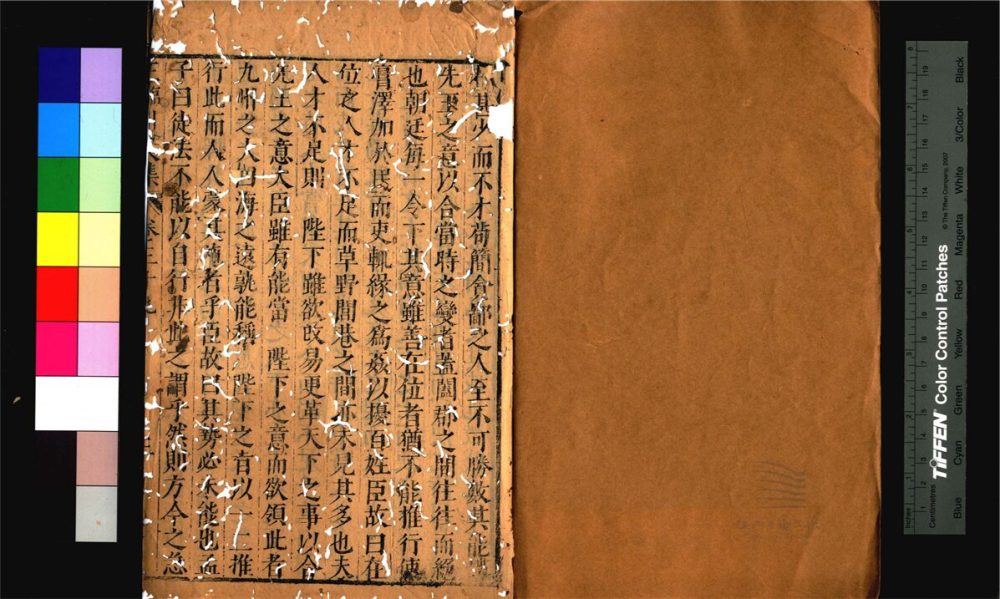 甚少而不才苟簡貪鄙之人至不可勝數其能
先王之意以合當時之變者蓋闔郡之間往往而絕
也朝廷每一令下其意雖善在位者猶不能推行使
膏澤加於民而吏輒緣之為姦以擾百姓臣故曰在
位之人才不足而草野閭巷之間亦未見其多也夫
人才不足則 陛下雖欲改易更革天下之事以合
先王之意大臣雖有能當 陛下之意而欲領此者
九州之大四海之遠孰能稱 陛下之旨以一二推
行此而人人蒙其施者乎臣故曰其勢必未能也孟
子曰徒法不能以自行非此之謂乎然則方今之急
TIFFEN® Color Control Patches
© The Tiffen Company, 2007
Inches
Centimetres
Blue Cyan Green Yellow Red Magenta White 3/Color Black